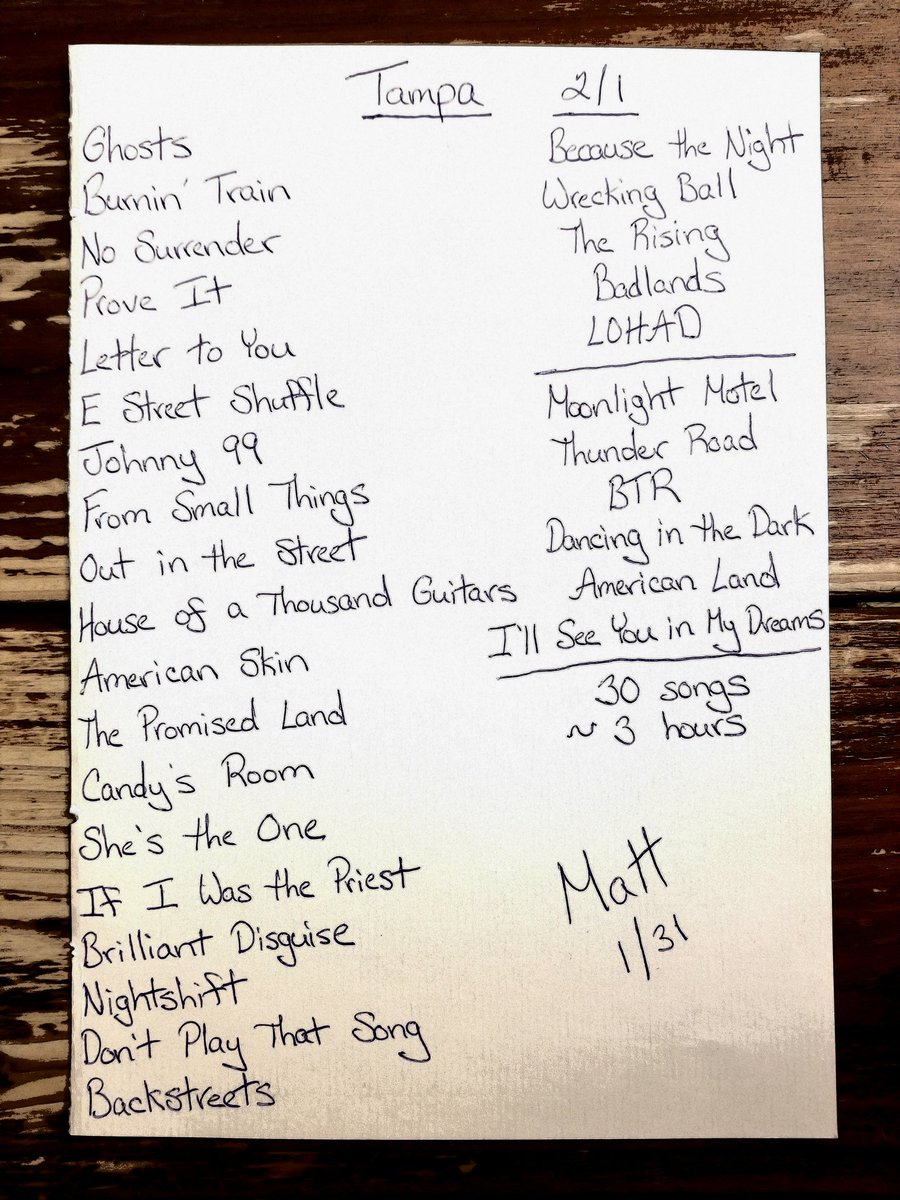 Tampa 2/1
Ghosts
Burnin' Train
No Surrender
Prove It
Letter to You
E Street Shuffle
Johnny 99
From Small Things
Out in the Street
House of a Thousand Guitars
American Skin
The Promised Land
Candy's Room
She's the One
If I Was the Priest
Brilliant Disguise
Nightshift
Don't Play That Song
Backstreets
Because the Night
Wrecking Ball
The Rising
Badlands
LOHAD
Moonlight Motel
Thunder Road
BTR
Dancing in the Dark
American Land
I'll See You in My Dreams
30 songs
~ 3 hours
Matt
1/31